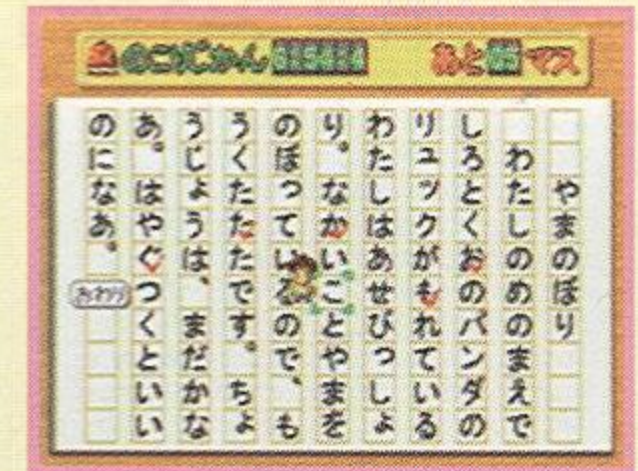 のこりじかん
あと マス
やまのぼり
わたしのめのまえで
しろとくおのパンダの
リュックがもれている
わたしはあせびっしょ
り。なかいことやまを
のぼっているので、も
うくたたたです。ちょ
うじょうは、まだかな
あ。はやぐつくといい
のになあ。
おわり